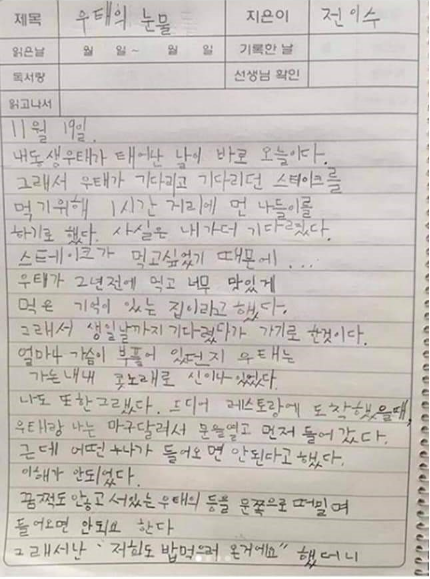 제목 우태의 눈물 지은이 전이수
읽은날 월 일 ~ 월 일 기록한 날
독서량 선생님 확인
읽고나서
11월 19일.
내동생우태가 태어난 날이 바로 오늘이다.
그래서 우태가 기다리고 기다리던 스테이크를
먹기위해 1시간 거리에 먼 나들이를
하기로 했다. 사실은 내가더 기다렸다.
스테이크가 먹고싶었기 때문에...
우태가 2년전에 먹고 너무 맛있게
먹은 기억이 있는 집이라고 했다.
그래서 생일날까지 기다렸다가 가기로 한것이다.
얼마나 가슴이 부풀어 있던지 우태는
가는내내 콧노래로 신이나 있었다.
나도 또한그랬다. 드디어 레스토랑에 도착했을때,
우태랑 나는 마구달려서 문을열고 먼저 들어 갔다.
근데 어떤 누나가 들어오면 안된다고 했다.
이해가 안되었다.
꿈쩍도안하고 서있는 우태의 등을 문쪽으로 떠밀며
들어오면 안되요 한다
그래서난 "저희도 밥먹으러 온거에요" 했더니